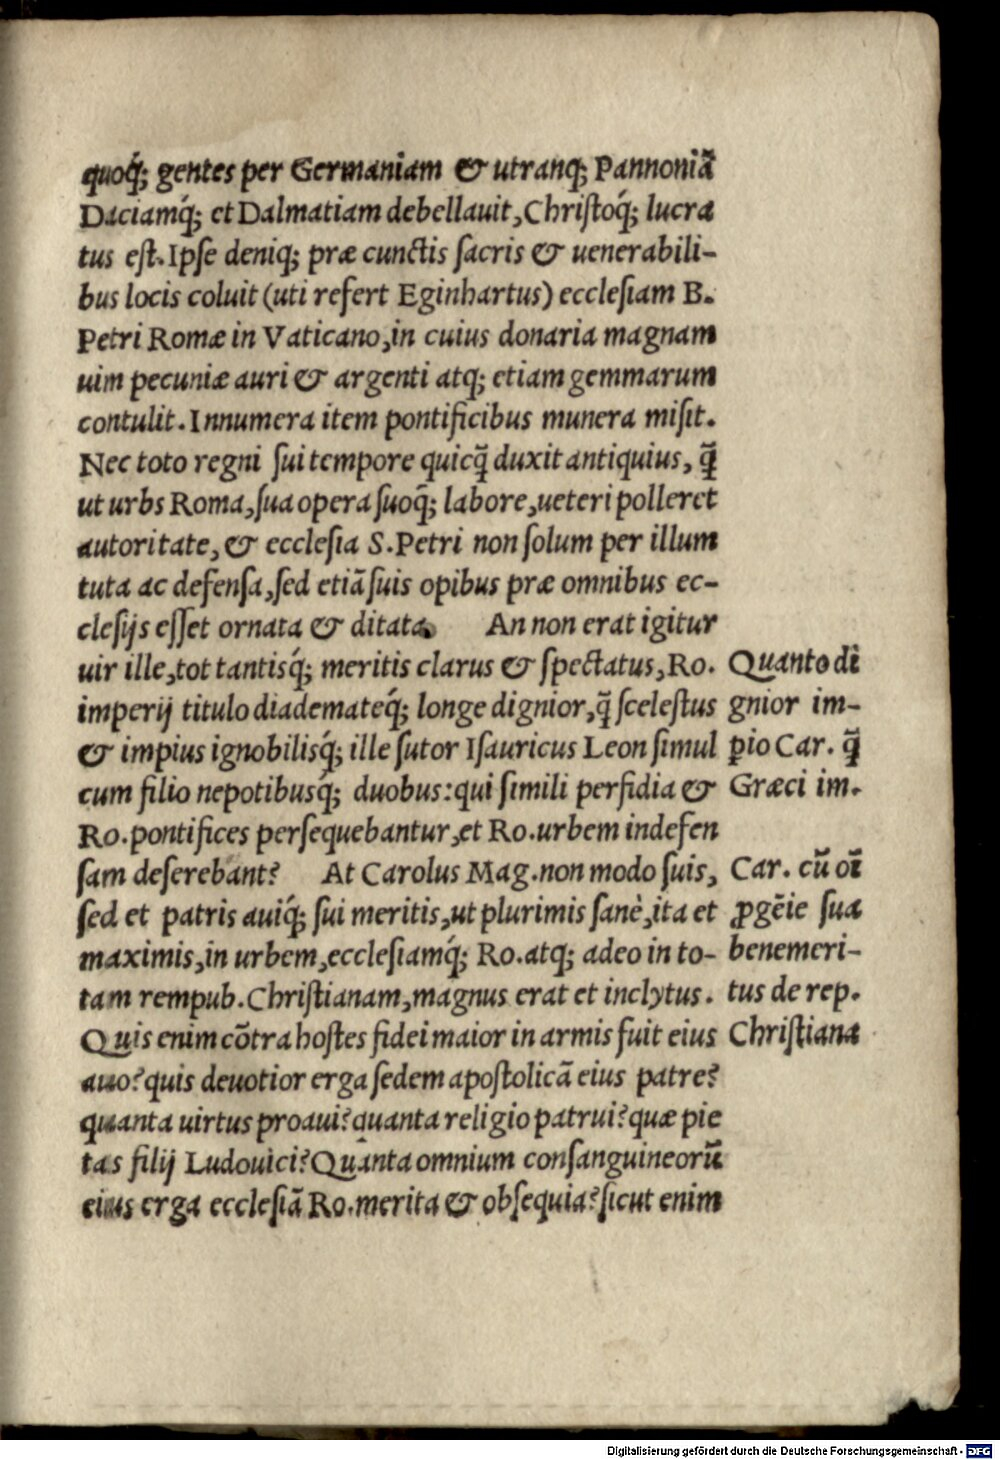 quoq́; gentes per Germaniam & utranq; Pannoniã
Daciamq́; et Dalmatiam debellauit, Christoq́; lucra
tus est. Ipse deniq; præ cunctis sacris & uenerabili-
bus locis coluit (uti refert Eginhartus) ecclesiam B.
Petri Romæ in Vaticano, in cuius donaria magnam
uim pecuniæ auri & argenti atq; etiam gemmarum
contulit. Innumera item pontificibus munera misit.
Nec toto regni sui tempore quicq̃ duxit antiquius, q̃
ut urbs Roma, sua opera suoq́; labore, ueteri polleret
autoritate, & ecclesia S. Petri non solum per illum
tuta ac defensa, sed etiã suis opibus præ omnibus ec-
clesijs esset ornata & ditata. An non erat igitur
uir ille, tot tantisq́; meritis clarus & spectatus, Ro.
imperij titulo diademateq́; longe dignior, q̃ scelestus
& impius ignobilisq́; ille sutor Isauricus Leon simul
cum filio nepotibusq́; duobus: qui simili perfidia &
Ro. pontifices persequebantur, et Ro. urbem indefen
sam deserebant? At Carolus Mag. non modo suis,
sed et patris auiq́; sui meritis, ut plurimis sanè, ita et
maximis, in urbem, ecclesiamq́; Ro. atq; adeo in to-
tam rempub. Christianam, magnus erat et inclytus.
Quis enim cõtra hostes fidei maior in armis fuit eius
auo? quis deuotior erga sedem apostolicã eius patre?
quanta uirtus proaui? quanta religio patrui? quæ pie
tas filij Ludouici? Quanta omnium consanguineorũ
eius erga ecclesiã Ro. merita & obsequia? sicut enim
Quanto di
gnior im-
ꝑio Car. q̃
Græci im.
Car. cũ oĩ
ꝓgẽie sua
benemeri-
tus de rep.
Christiana
Digitalisierung gefördert durch die Deutsche Forschungsgemeinschaft - DFG